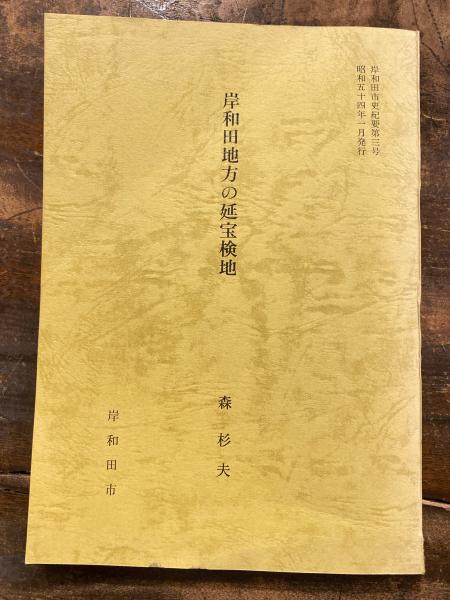 岸和田市史紀要第三号
昭和五十四年一月発行
岸和田地方の延宝検地
森杉夫
岸和田市